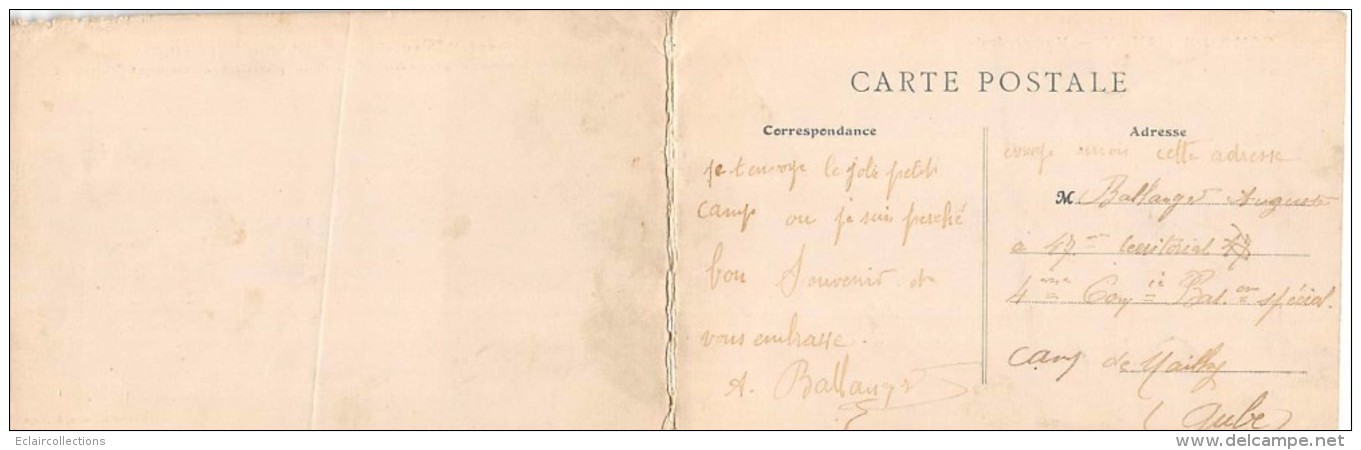 CARTE POSTALE
Correspondance
je t'envoye le joli petit
camp ou je suis perché
bon Souvenir et
vous embrasse.
A. Ballanger
Adresse
cette adresse
M. Ballanger Auguste
à 47me territorial 47
4eme Cony ie Bat. on spécial.
Camp de Mailly
(Aube)
Eclaircollections
www.delcampe.net